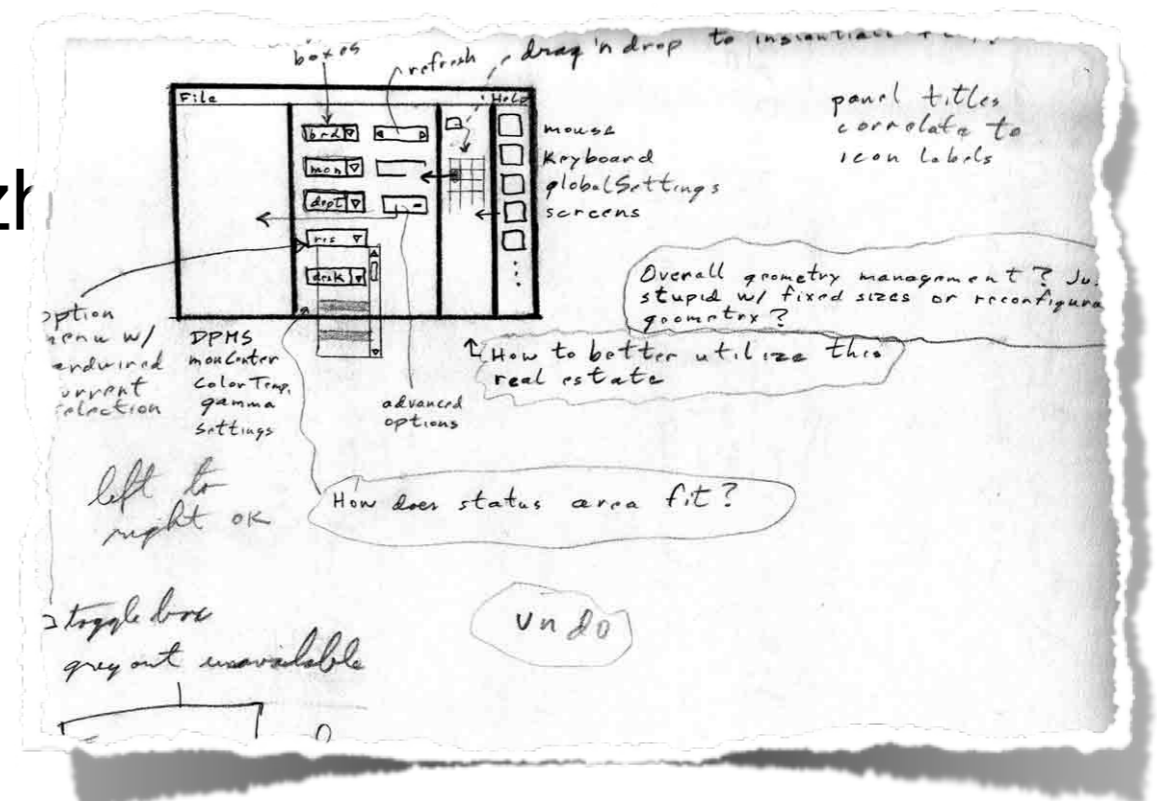 boxes
refresh
drag 'n drop to instantiate
File
Help
brd
mon
dept
res
desk
mouse
Keyboard
globalSettings
screens
panel titles
correlate to
icon labels
Overall geometry management? Ju
stupid w/ fixed sizes or reconfigura
geometry?
How to better utilize this
real estate
option
menu w/
current
selection
DPMS
monCenter
Color Temp,
gamma
settings
advanced
options
left to
right OK
How does status area fit?
toggle box
grey out unavailable
Undo
zh